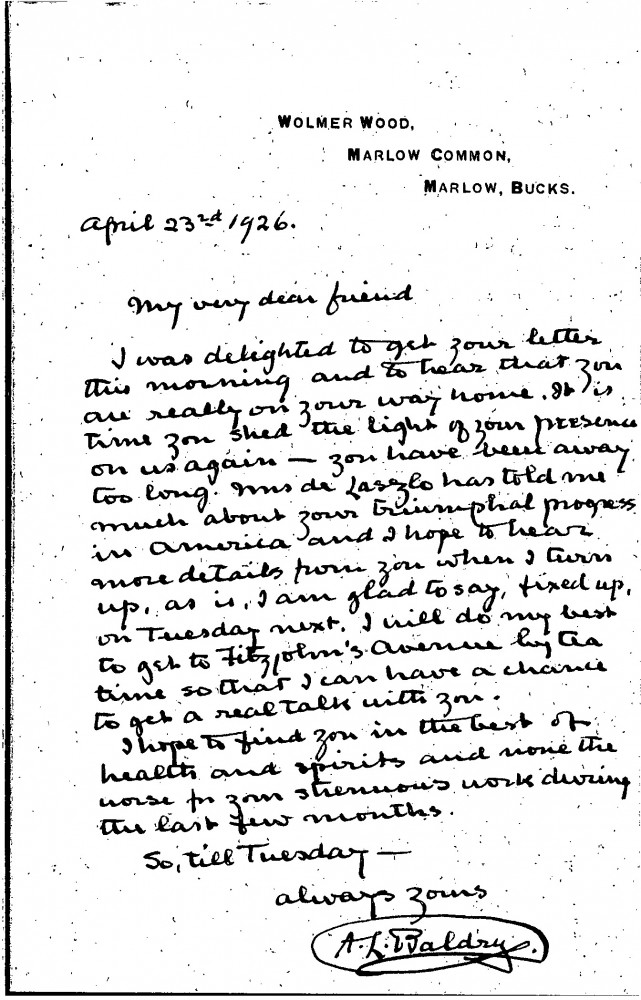 WOLMER WOOD,
MARLOW COMMON,
MARLOW, BUCKS.
April 23rd 1926.
My very dear friend
I was delighted to get your letter
this morning and to hear that you
are really on your way home. It is
time you shed the light of your presence
on us again — you have been away
too long. Mrs de Laszlo has told me
much about your triumphal progress
in America and I hope to hear
more details from you when I turn
up, as is, I am glad to say, fixed up,
on Tuesday next. I will do my best
to get to Fitzjohn's Avenue by tea
time so that I can have a chance
to get a real talk with you.
I hope to find you in the best of
health and spirits and none the
worse for your strenuous work during
the last few months.
So, till Tuesday —
always yours
A. L. Baldry.